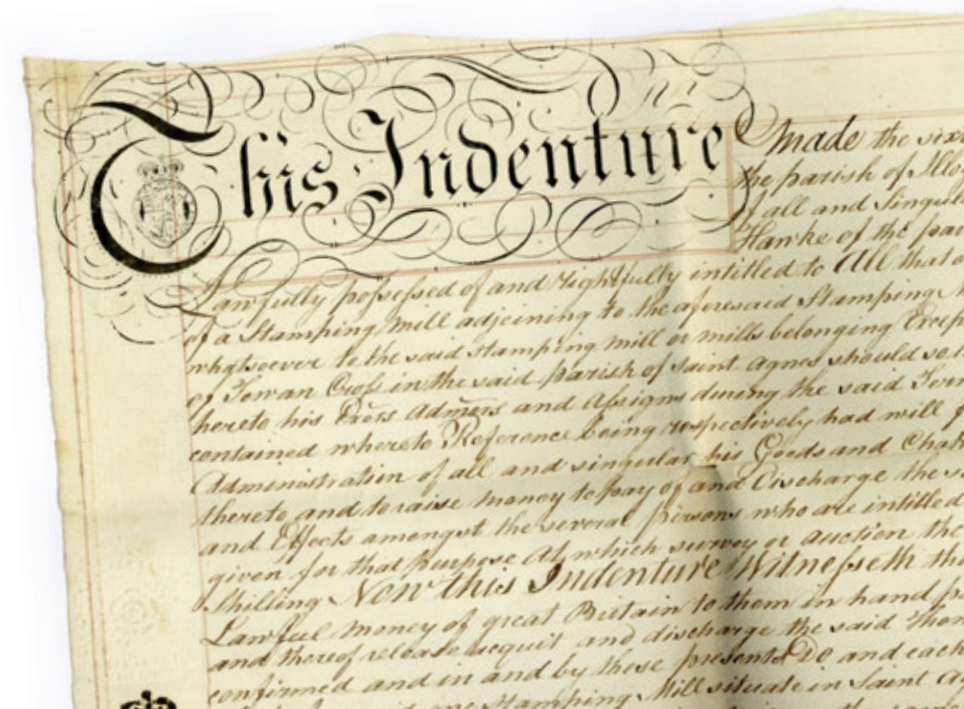 This Indenture Made the
the parish of
of all and
Hawke of the
Lawfully possessed of and rightfully intitled to All that
of a Stamping Mill adjoining to the aforesaid Stamping
whatsoever to the said stamping mill or mills belonging
of Towan Cross in the said parish of saint Agnes should so
hereto his Exōrs Admōrs and Assigns during the said Term
contained whereto Reference being respectively had will
Administration of all and singular his Goods and
thereto and to raise money to pay of and Discharge the
and Effects amongst the several persons who are intitled
given for that Purpose At which survey or auction the
Shilling Now this Indenture Witnesseth
Lawful money of great Britain to them in hand
and thereof release acquit and discharge the said
confirmed and in and by these presents Do and each
one Stamping Mill situate in Saint
the same